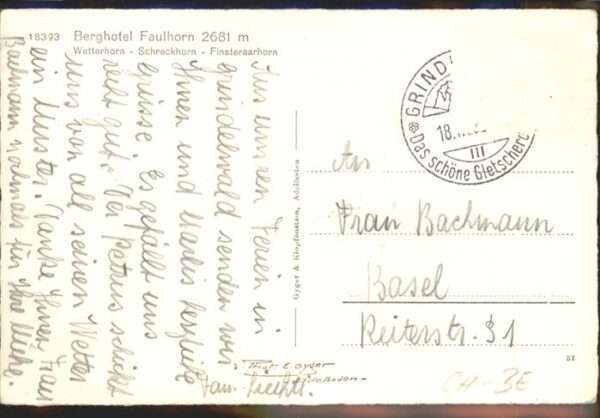 18393 Berghotel Faulhorn 2681 m
Wetterhorn - Schreckhorn - Finsteraarhorn
Aus unsern Ferien in
Grindelwald senden wir
Ihnen und Marlis herzliche
Grüsse. Es gefällt uns
recht gut. Der Petrus schickt
uns von all seinen Wetter
ein Muster. Danke Ihnen, Frau
Bachmann nochmals für Ihre Mühe.
Fam.
Gyger & Klopfenstein, Adelboden
Phot. E. Gyger
Adelboden
GRIND
18.
III
Das schöne Gletscherd
An
Frau Bachmann
Basel
Reiterstr. 31
CH-BE